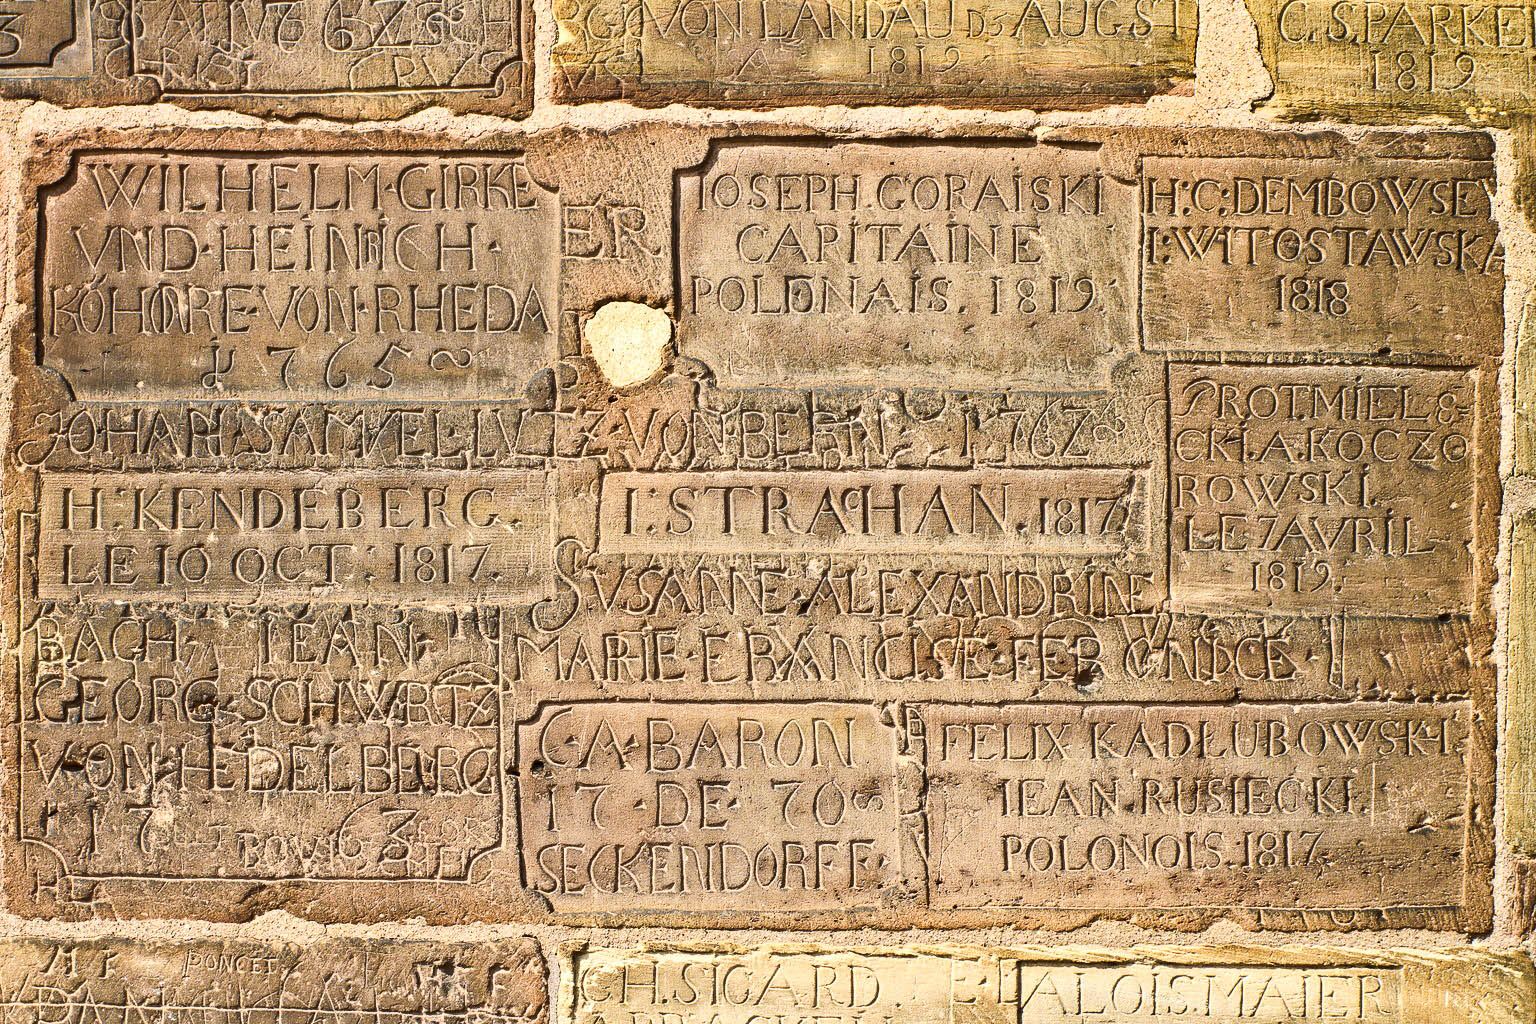 1762
VON.LANDAU Ds AUGST
1819
C.S.PARKER
1819
WILHELM·GIRKE
VND·HEINRICH·
KÖHNRE·VON·RHEDA
1765
ER
IOSEPH.GORAISKI
CAPITAINE
POLONAIS. 1819.
H:C:DEMBOWSEY
I:WITOSTAWSKA
1818
JOHAN·SAMVEL·LVTZ·VON·BERN 1762
ROTMIEL&
CKI.A.KOCZO
ROWSKI.
LE 7AVRIL
1819.
H:KENDEBERG.
LE 10 OCT: 1817.
I:STRAHAN.1817
SUSANNE·ALEXANDRINE
MARIE·FRANCISE·FER
BACH· IEAN·
GEORG·SCHWRTZ
VON·HEDELBERG
1763
C·A·BARON
17·DE·70
SECKENDORFF·
FELIX KADŁUBOWSKI.
IEAN.RUSIECKI.
POLONOIS.1817.
PONCET
CH.SIGARD
ALOIS.MAIER